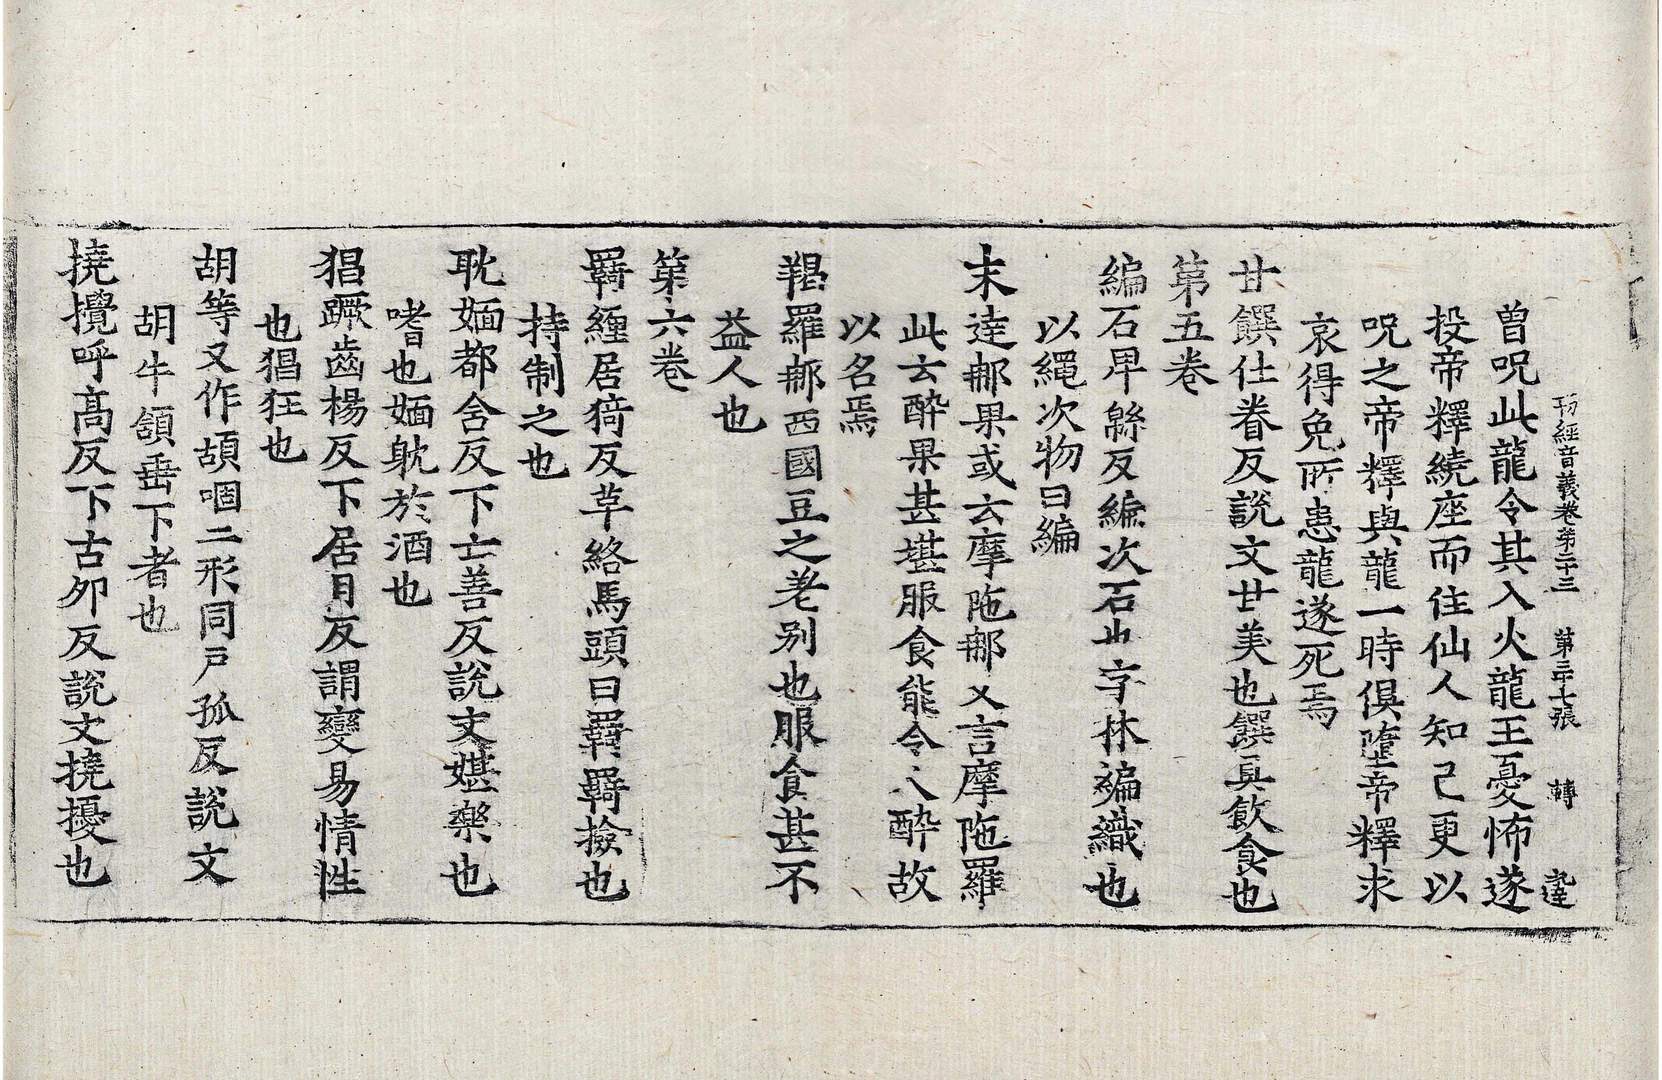 刊經音義卷第二十三 第二十七張 轉
曽呪此龍令其入火龍王憂怖遂
投帝釋繞座而住仙人知已更以
呪之帝釋與龍一時俱墮帝釋求
哀得免所患龍遂死焉
甘饌仕眷反說文甘美也饌具飲食也
第五卷
編石卑緜反編次石也字林褊織也
以繩次物曰編
末達那果或云摩陁那又言摩陁羅
此云醉果甚堪服食能令人醉故
以名焉
羯羅那西國豆之老别也服食甚不
益人也
第六卷
羇纏居猗反草絡馬頭曰羇羇撿也
持制之也
耽媔都含反下士善反說文媅樂也
嗜也媔躭於酒也
猖蹶齒楊反下居月反謂變易情性
也猖狂也
胡等又作頡咽二形同戸孤反說文
胡牛頷垂下者也
撓攪呼髙反下古夘反說文撓擾也